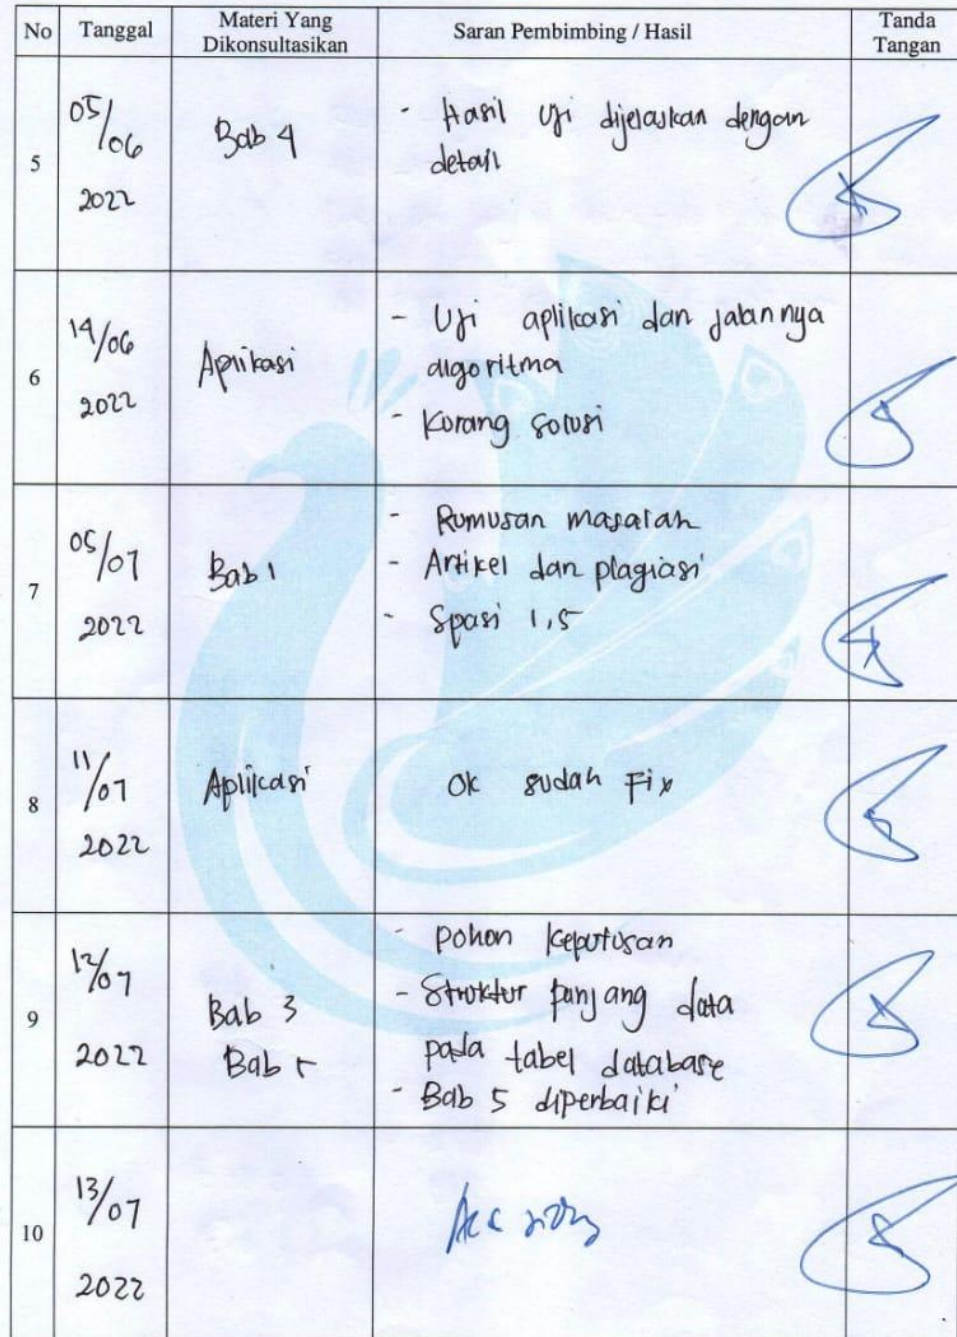 No Tanggal Materi Yang Dikonsultasikan Saran Pembimbing / Hasil Tanda Tangan
5
05/06
2022
Bab 4
- Hasil Uji dijelaskan dengan
detail
6
14/06
2022
Aplikasi
- Uji aplikasi dan jalannya
algoritma
- Kurang solusi
7
05/07
2022
Bab 1
- Rumusan masalah
- Artikel dan plagiasi
- Spasi 1,5
8
11/07
2022
Aplikasi
Ok sudah Fix
9
12/07
2022
Bab 3
Bab 5
- pohon keputusan
- Struktur panjang data
pada tabel database
- Bab 5 diperbaiki
10
13/07
2022
Acc sidang